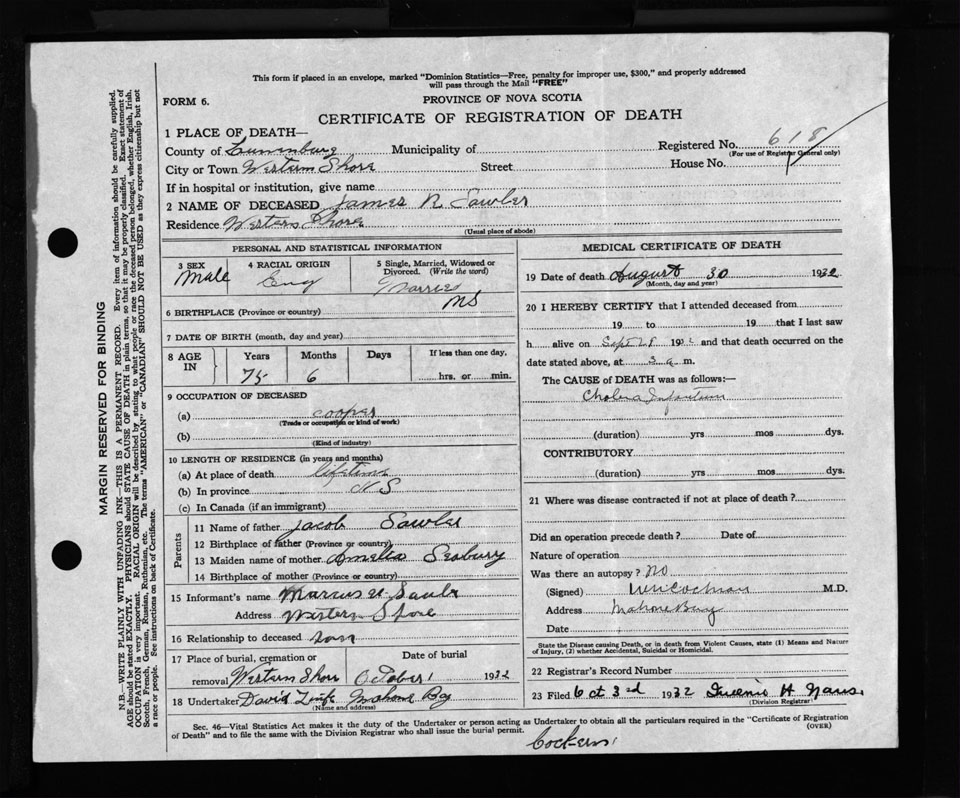 This form if placed in an envelope, marked "Dominion Statistics—Free, penalty for improper use, $300," and properly addressed
will pass through the Mail "FREE"
FORM 6.
PROVINCE OF NOVA SCOTIA
CERTIFICATE OF REGISTRATION OF DEATH
1 PLACE OF DEATH—
Registered No. 618
(For use of Registrar General only)
County of Lunenburg Municipality of
City or Town Western Shore Street House No.
If in hospital or institution, give name
2 NAME OF DECEASED James R Sawler
Residence Western Shore
(Usual place of abode)
PERSONAL AND STATISTICAL INFORMATION
3 SEX 4 RACIAL ORIGIN 5 Single, Married, Widowed or
Divorced. (Write the word)
Male Eng Married
6 BIRTHPLACE (Province or country) NS
7 DATE OF BIRTH (month, day and year)
8 AGE IN Years Months Days If less than one day,
75 6 hrs. or min.
9 OCCUPATION OF DECEASED
(a) cooper
(Trade or occupation or kind of work)
(b)
(Kind of industry)
10 LENGTH OF RESIDENCE (in years and months)
(a) At place of death lifetime
(b) In province NS
(c) In Canada (if an immigrant)
Parents
11 Name of father Jacob Sawler
12 Birthplace of father (Province or country)
13 Maiden name of mother Amelia Seabury
14 Birthplace of mother (Province or country)
15 Informant's name Marcus
Address Western Shore
16 Relationship to deceased son
17 Place of burial, cremation or Date of burial
removal Western Shore October 1 1932
18 Undertaker David Mahone Bay
(Name and address)
MEDICAL CERTIFICATE OF DEATH
19 Date of death August 30 1932
(Month, day and year)
20 I HEREBY CERTIFY that I attended deceased from
19 to 19 that I last saw
h alive on Sept 28 1932 and that death occurred on the
date stated above, at 3 a. m.
The CAUSE of DEATH was as follows:—
Cholera Infantum
(duration) yrs mos dys.
CONTRIBUTORY
(duration) yrs mos dys.
21 Where was disease contracted if not at place of death?
Did an operation precede death? Date of
Nature of operation
Was there an autopsy? No
(Signed) M.D.
Address Mahone Bay
Date
State the Disease causing Death, or in death from Violent Causes, state (1) Means and Nature
of Injury, (2) whether Accidental, Suicidal or Homicidal.
22 Registrar's Record Number
23 Filed Oct 3rd 1932 H
(Division Registrar)
Sec. 46—Vital Statistics Act makes it the duty of the Undertaker or person acting as Undertaker to obtain all the particulars required in the "Certificate of Registration
of Death" and to file the same with the Division Registrar who shall issue the burial permit. (OVER)
MARGIN RESERVED FOR BINDING
N.B.—WRITE PLAINLY WITH UNFADING INK—THIS IS A PERMANENT RECORD. Every item of information should be carefully supplied.
AGE should be stated EXACTLY. PHYSICIANS should STATE CAUSE OF DEATH in plain terms, so that it may be properly classified. Exact statement of
OCCUPATION is very important. RACIAL ORIGIN will be described by stating to what people or race the deceased person belonged, whether English, Irish,
Scotch, French, German, Russian, Ruthenian, etc. The terms "AMERICAN" or "CANADIAN" SHOULD NOT BE USED as they express citizenship but not
a race or people. See instructions on back of Certificate.